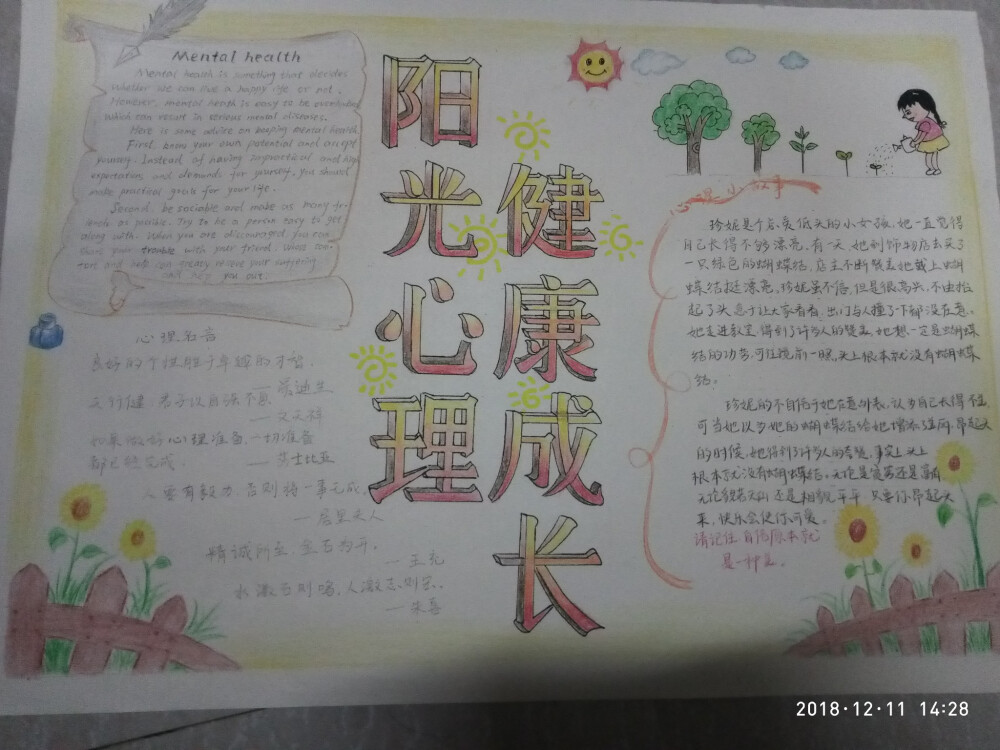 Mental health
Mental health is something that decides
whether we can live a happy life or not.
However, mental health is easy to be overlooked
which can result in serious mental diseases.
Here is some advice on keeping mental health
First, know your own potential and accept
yourself. Instead of having impractical and high
expectation and demands for yourself, you should
make practical goals for your life.
Second, be sociable and make as many fri-
ends as possible. Try to be a person easy to get
along with. When you are discouraged, you can
share your trouble with your friend, whose com-
fort and help can greatly relieve your suffering
and help you out.
心理名言
良好的个性胜于卓越的才智。
——爱迪生
天行健,君子以自强不息
——文天祥
如果做好心理准备,一切准备
都已经完成。 ——莎士比亚
人要有毅力,否则将一事无成。
——居里夫人
精诚所至,金石为开。
——王充
水激石则鸣,人激志则宏。
——朱熹
阳光心理
健康成长
心理小故事
珍妮是个总爱低头的小女孩,她一直觉得
自己长得不够漂亮,有一天,她到饰物店去买了
一只绿色的蝴蝶结,店主不断赞美她戴上蝴
蝶结挺漂亮,珍妮虽不信,但是很高兴,不由抬
起了头,急于让大家看看,出门与人撞了下都没在意。
她走进教室,得到了许多人的赞美,她想一定是蝴蝶
结的功劳,可往镜前一照,头上根本就没有蝴蝶
结。
珍妮的不自信于她在意外表,认为自己长得不美,
可当她以为她的蝴蝶结给她增添了美丽,昂起头
的时候,她得到了许多人的赞美,事实上头上
根本就没有蝴蝶结。无论是贫穷还是富有
无论貌若天仙,还是相貌平平,只要你昂起头
来,快乐会使你可爱。
请记住:自信原本就
是一种美。
2018·12·11 14:28